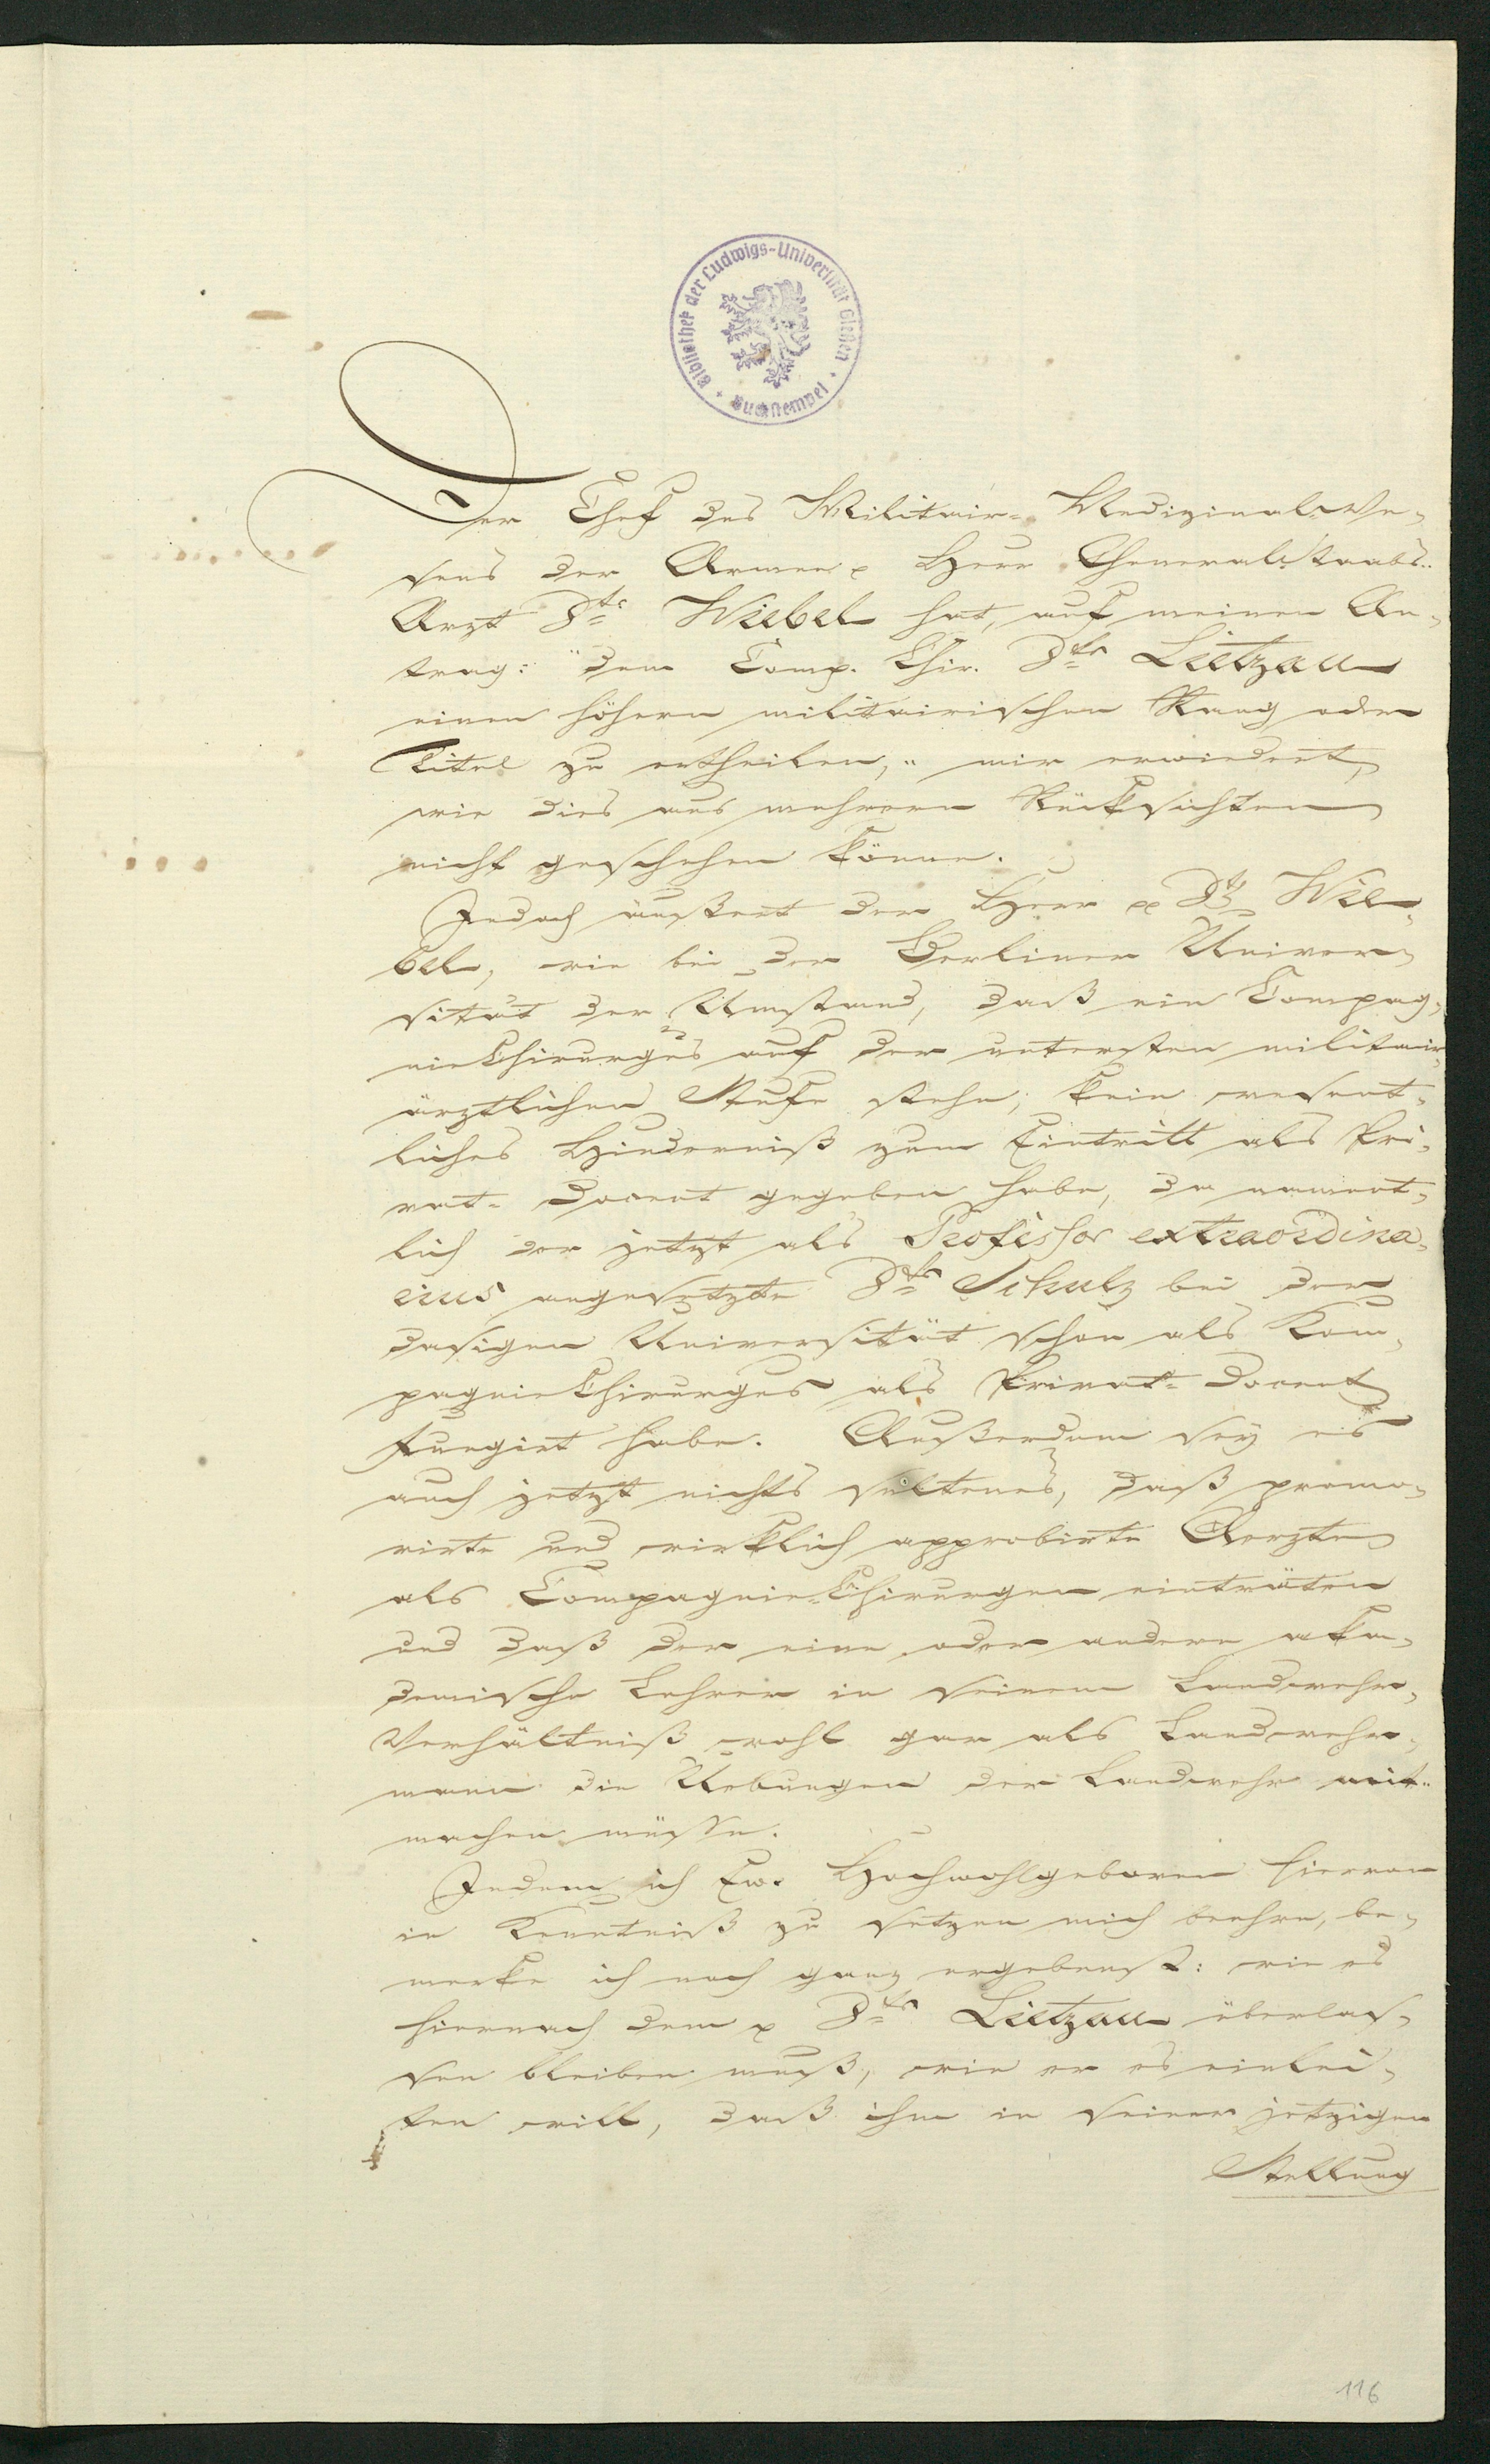 Bibliothek der Ludwigs-Universität Gießen
Buchstempel
Der Chef des Militair-Medizinal-We-
sens der Armee p Herr Generalstaabs-
Arzt Dr Wiebel hat, auf meinen An-
trag: "dem Comp. Chir. Dr Lietzau
einen höhern militairischen Rang oder
Titel zu ertheilen," mir erwiedert,
wie dies aus mehrern Rücksichten
nicht geschehen könne.
Jedoch äußert der Herr p Dr Wie-
bel, wie bei der Berliner Univer-
sität der Umstand, daß ein Compag-
nie Chirurgus auf der untersten militair-
ärztlichen Stufe stehe, kein wesent-
liches Hinderniß zum Eintritt als Pri-
vat-Docent gegeben habe, da nament-
lich der jetzt als Professor extraordina-
rius angesetzte Dr Schulz bei der
dasigen Universität schon als Kom-
pagnie Chirurgus als Privat-Docent
fungirt habe. Außerdem sey es
auch jetzt nichts seltenes, daß promo-
virte und wirklich approbirte Aerzte
als Compagnie-Chirurgen einträten
und daß der eine oder andere aka-
demische Lehrer in seinem Landwehr-
Verhältniß wohl gar als Landwehr-
mann die Uebungen der Landwehr mit-
machen müsse.
Indem ich Ew. Hochwohlgeboren hiervon
in Kenntniß zu setzen mich beehre, be-
merke ich noch ganz ergebenst: wie es
hiernach dem p Dr Lietzau überlas-
sen bleiben muß, wie er es einlei-
ten will, daß ihm in seiner jetzigen
Stellung
116